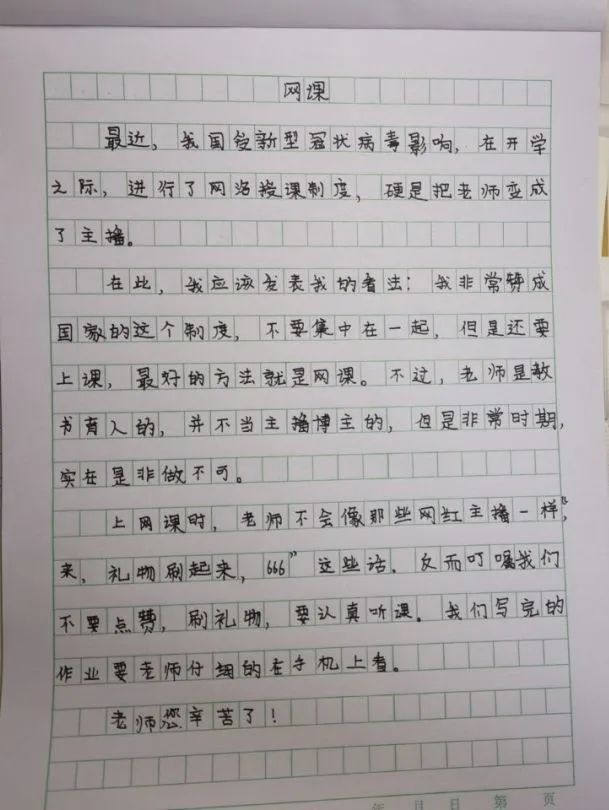 网课
最近，我国受新型冠状病毒影响，在开学
之际，进行了网络授课制度，硬是把老师变成
了主播。
在此，我应该发表我的看法：我非常赞成
国家的这个制度，不要集中在一起，但是还要
上课，最好的方法就是网课。不过，老师是教
书育人的，并不当主播博主的，但是非常时期，
实在是非做不可。
上网课时，老师不会像那些网红主播一样，“
来，礼物刷起来，666”这些话．反而叮嘱我们
不要点赞，刷礼物，要认真听课。我们写完的
作业要老师仔细的在手机上看。
老师您辛苦了！
年 月 日 第 页